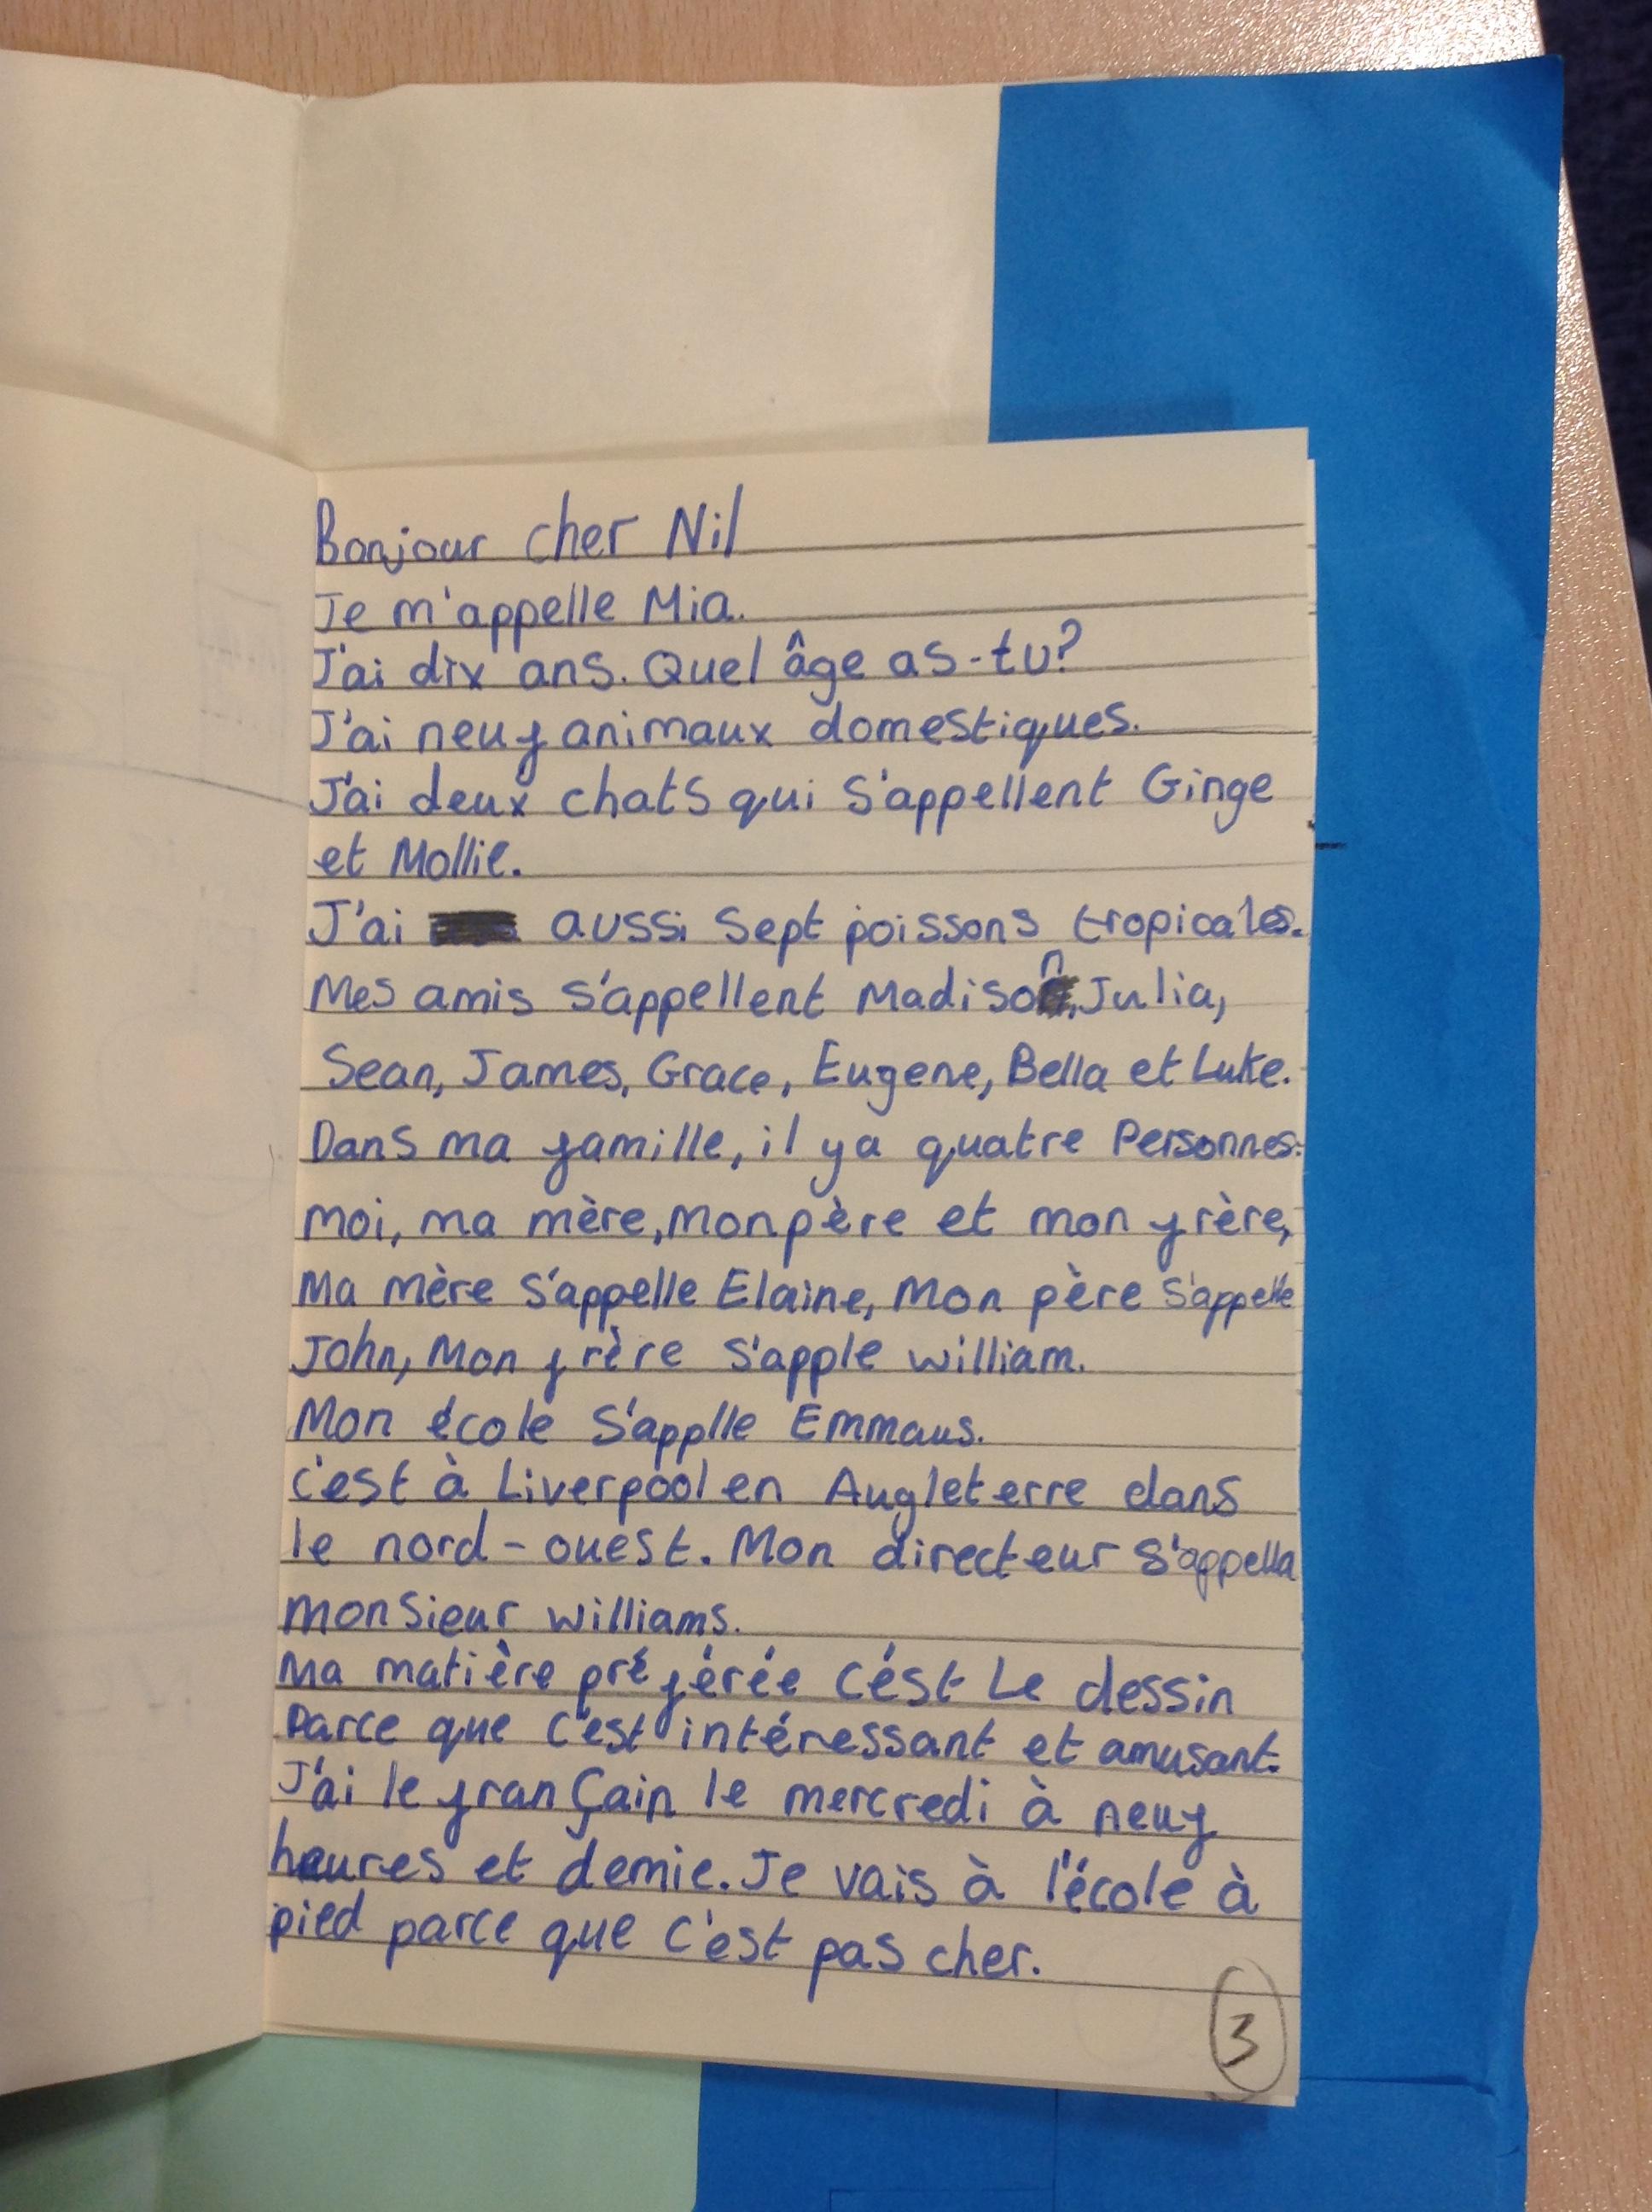 Bonjour cher Nil
Je m'appelle Mia.
J'ai dix ans. Quel âge as-tu?
J'ai neuf animaux domestiques.
J'ai deux chats qui s'appellent Ginge
et Mollie.
J'ai aussi sept poissons tropicales.
Mes amis s'appellent Madison, Julia,
Sean, James, Grace, Eugene, Bella et Luke.
Dans ma famille, il ya quatre Personnes:
moi, ma mère, mon père et mon frère,
Ma mère s'appelle Elaine, Mon père s'appelle
John, Mon frère s'apple william.
Mon école s'applle Emmaus.
c'est à Liverpool en Augleterre dans
le nord-ouest. Mon directeur s'appella
monsieur williams.
Ma matière préférée cést Le dessin
Parce que c'est intéressant et amusant.
J'ai le françain le mercredi à neuf
heures et demie. Je vais à l'école à
pied parce que c'est pas cher.
3